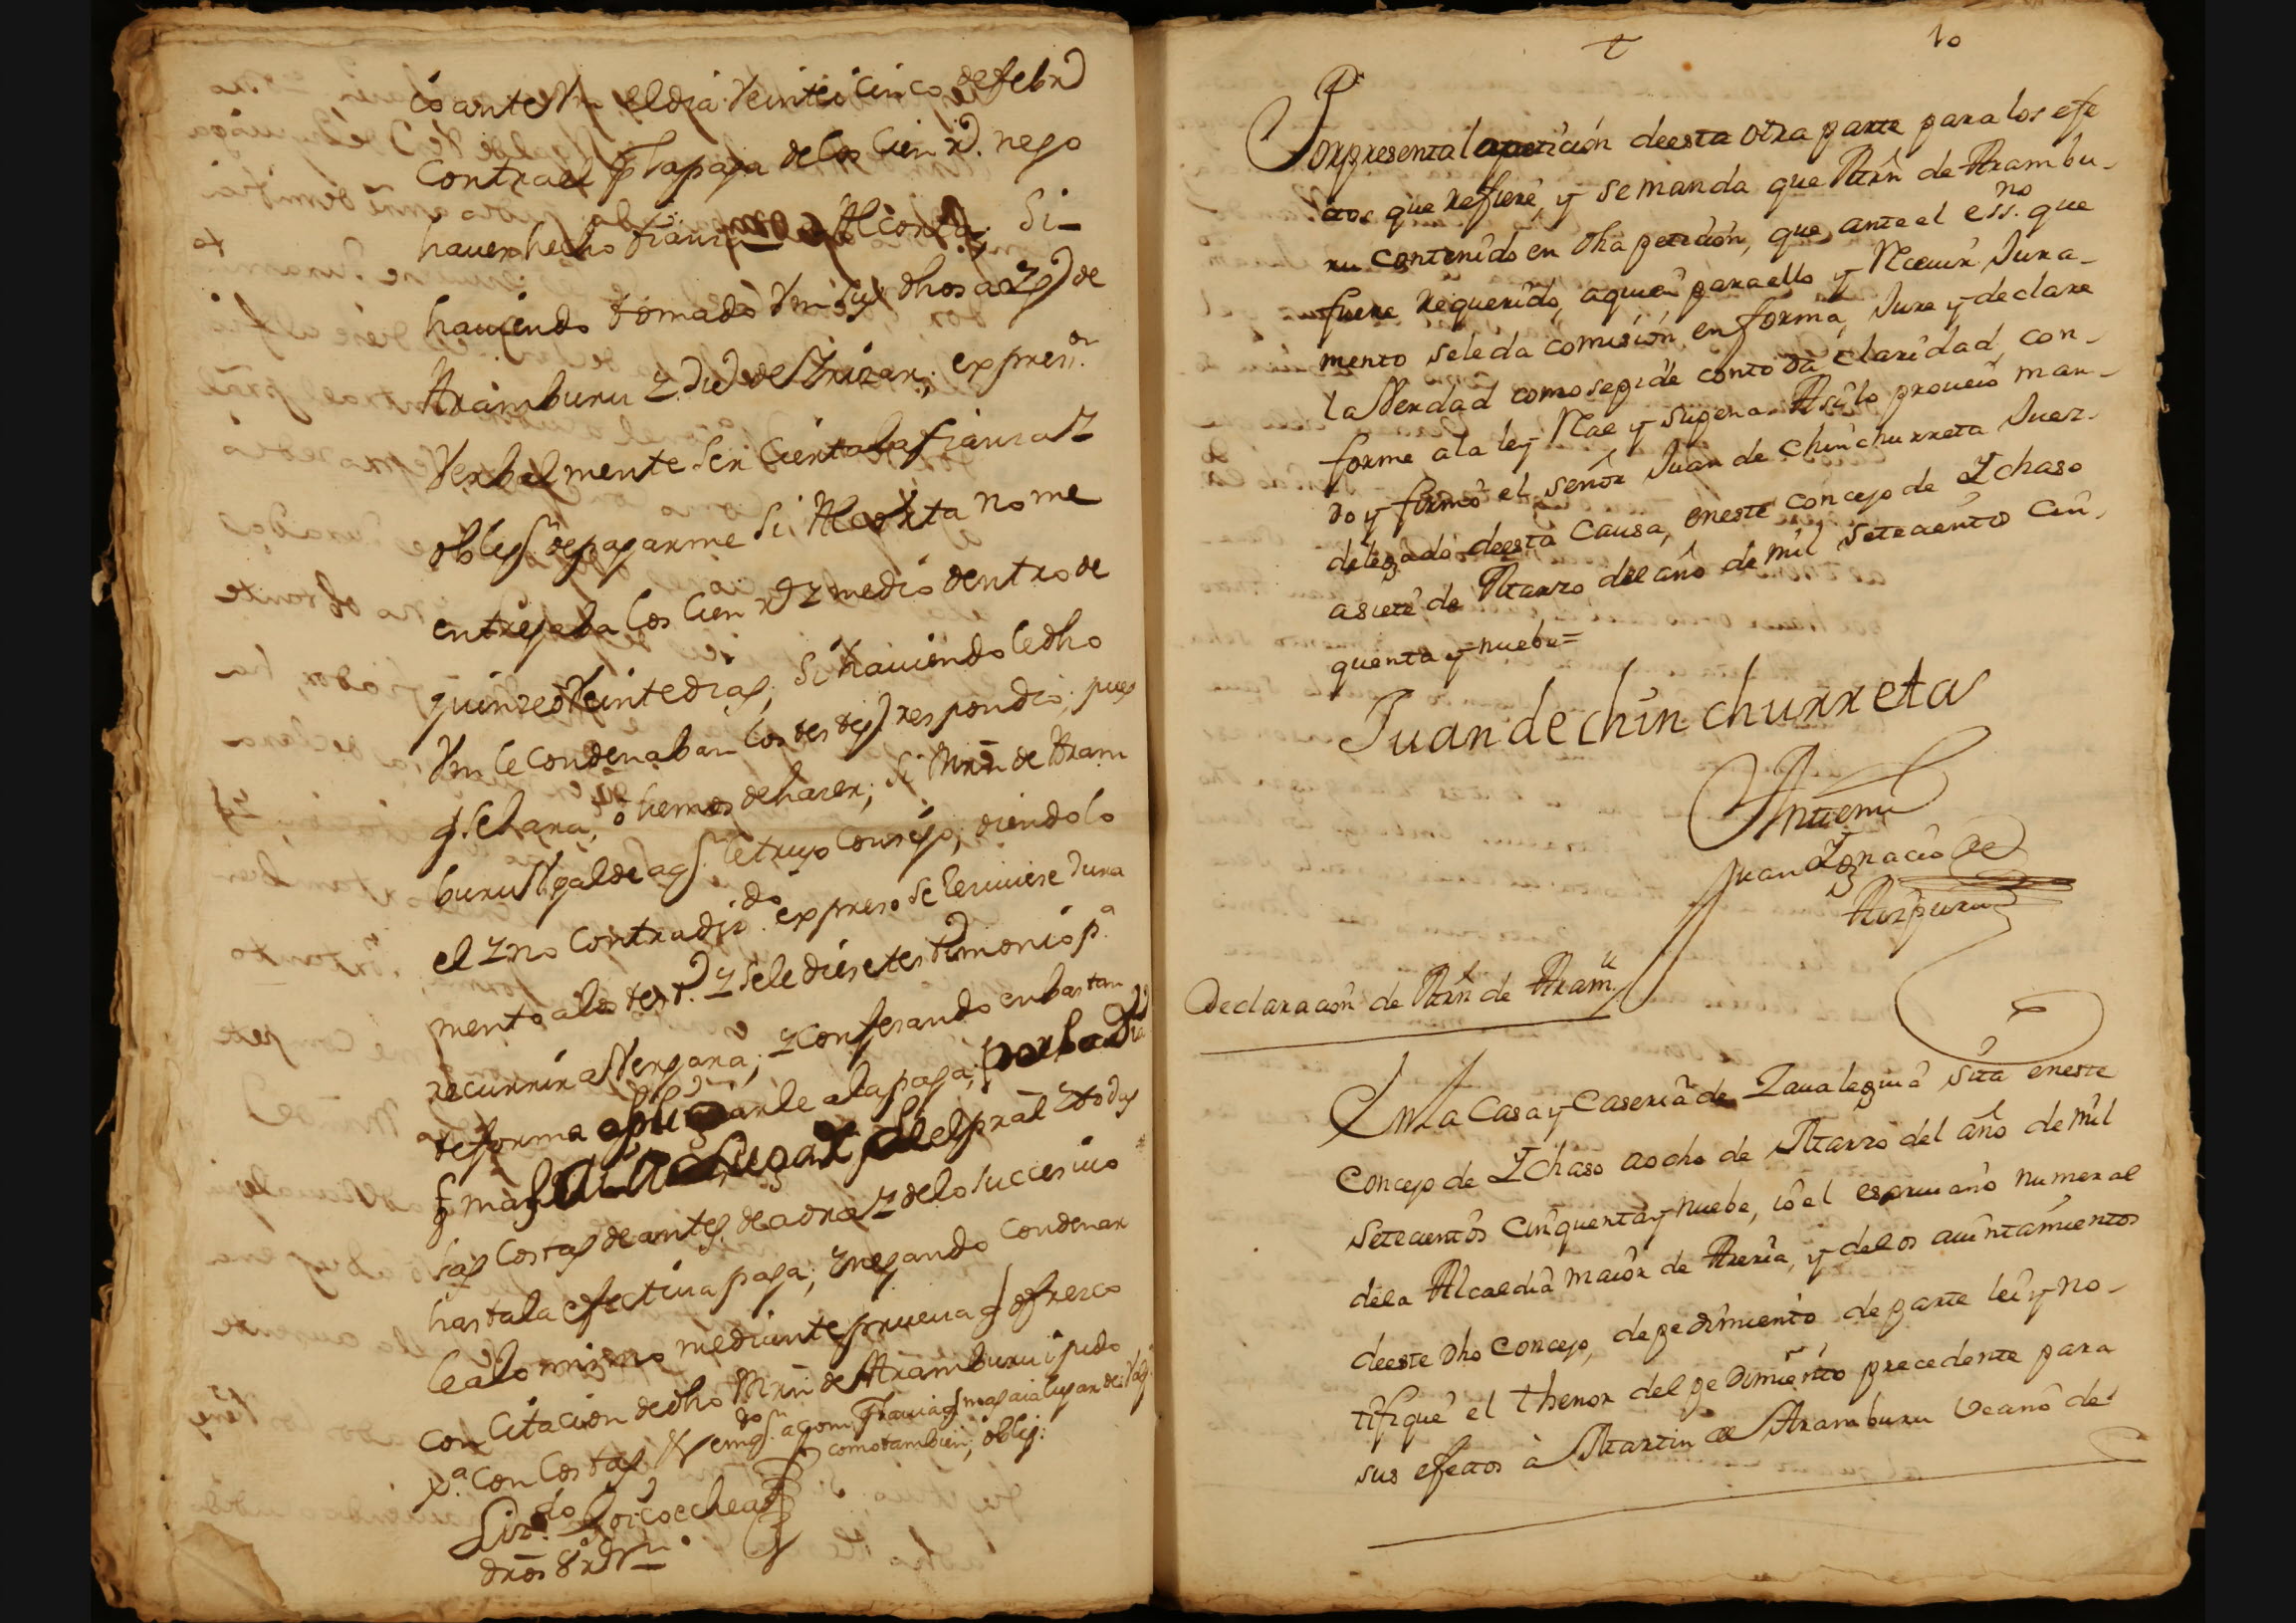 cio ante Vm el dia Veinte i Cinco de febr.º
Contra el paga de los Cien r.s nego
haver hecho fianza Alcorta; Si
haviendo tomado Vm Sus dhos a de
Aramburu y de Yrizar; expres.on
Verbalmente Ser Cierta la fianza y
oblig.n de pagarme Si Alcorta no me
entregaba los Cien r.s y medio dentro de
quinze o Veinte dias; Si haviendole dho
Vm le Condenaban los testig.s respondio; pues
q. se hara, o hemos de hazer; Si Mrn de Aram
buru Ugalde le truxo Consejo; diendolo
el y no Contradiz.do expreso se le reciviese Jura
mento a los test.s y se le diese testimonio p.a
recurrir a Vergara; y Confesando en bastan
te forma a la paga;
mas lugar del pral y todas
las Costas de antes de aora y de lo succesiuo
hasta la efectiua paga; y negando Condenar
le a lo mismo mediante prueua q ofrezco
Con Citacion de dho Mrn de Aramburu i pido
x.a Con Costas &
como tambien; oblig:
Liz.do Goicoechea
dros 8 r.s Vn
10
Por presenta la peticion de esta otra parte para los efe
ctos que refiere, y se manda que Mrn. de Arambu-
ru contenido en dha peticion, que ante el ess.no que
fuere requerido, a quien para ello y Recivir Jura-
mento se le da comision en forma, Jure y declare
la Verdad como se pide con toda claridad, con-
forme a la ley Rae y su pena. Asi lo proueio man-
do y firmó el señor Juan de Chinchurreta Juez
delegado de esta Causa, en este concejo de Ychaso
a siete de Marzo del año de mil setecientos cin-
quenta y nuebe =
Juan de chin churreta
Ante mi
Juan Ygnacio de
Aizpuru
Declaracion de Mrn de Aram.u
En la Casa y Caseria de Zaualeguia sita en este
Concejo de Ychaso a ocho de Marzo del año de mil
Setecientos Cinquenta y nuebe, io el escriuano numeral
de la Alcaldia maior de Areria, y de los aiuntamientos
de este dho Concejo, de pedimiento de parte lei y no-
tifique el thenor del pedimiento precedente para
sus efectos à Martin de Aramburu Vecino de